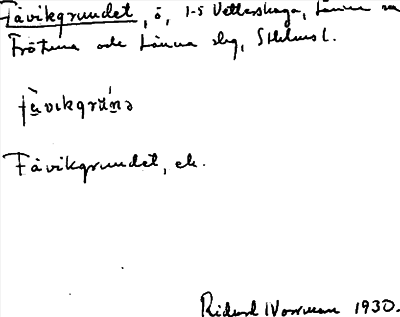 Fåvikgrundet, ö, 1-5 Vettershaga, Länna sn
Frötuna och Länna skg, Sthlms l.
få̀vikgrún̥ə
Fåvikgrundet, ek.
Rickard Norrman 1930.